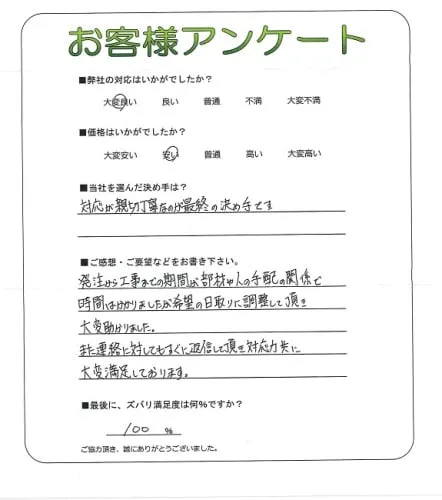 お客様アンケート
■弊社の対応はいかがでしたか？
大変良い 良い 普通 不満 大変不満
■価格はいかがでしたか？
大変安い 安い 普通 高い 大変高い
■当社を選んだ決め手は？
対応が親切丁寧なのが最終の決め手です
■ご感想・ご要望などをお書き下さい。
発注から工事までの期間が部材や人の手配の関係で
時間はかかりましたが希望の日取りに調整して頂き
大変助かりました。
また連絡に対してもすぐに返信して頂き対応力共に
大変満足しております。
■最後に、ズバリ満足度は何％ですか？
100 ％
ご協力頂き、誠にありがとうございました。